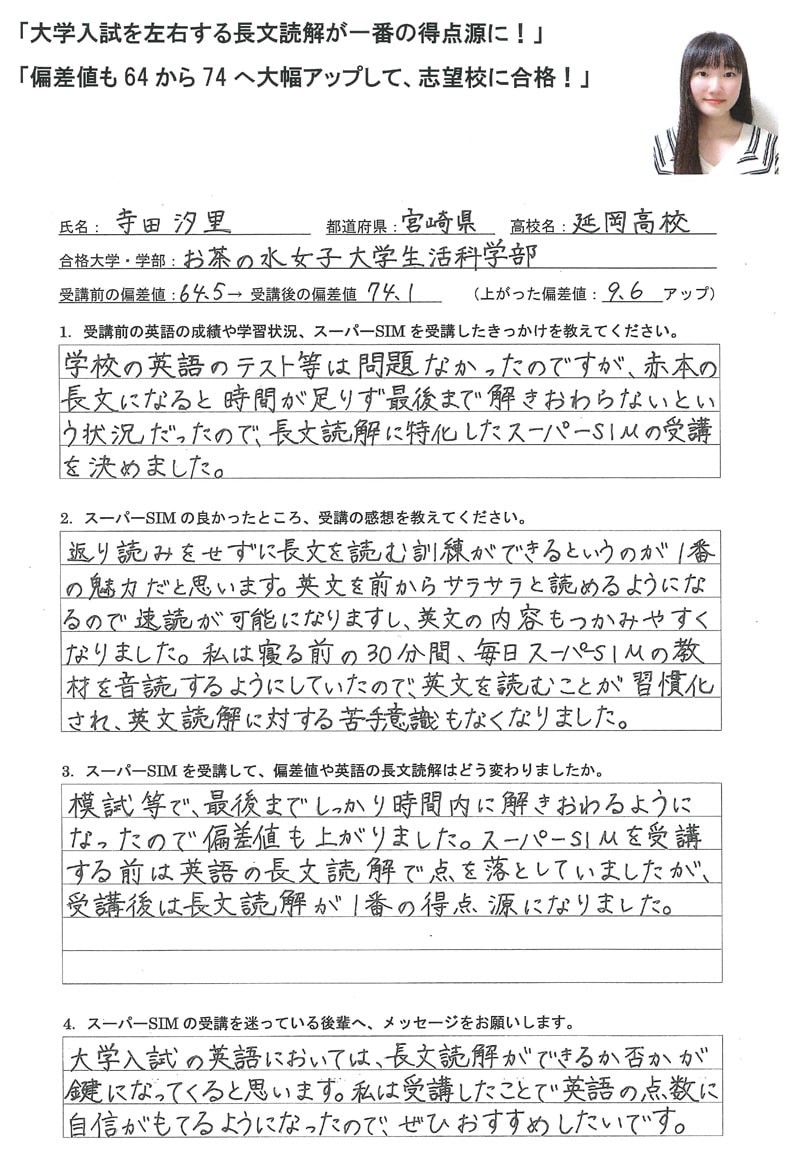 「大学入試を左右する長文読解が一番の得点源に！」
「偏差値も64から74へ大幅アップして、志望校に合格！」
氏名：寺田汐里 都道府県：宮崎県 高校名：延岡高校
合格大学・学部：お茶の水女子大学生活科学部
受講前の偏差値：64.5→ 受講後の偏差値 74.1 （上がった偏差値：9.6アップ）
1. 受講前の英語の成績や学習状況、スーパーSIMを受講したきっかけを教えてください。
学校の英語のテスト等は問題なかったのですが、赤本の
長文になると時間が足りず最後まで解きおわらないとい
う状況だったので、長文読解に特化したスーパーSIMの受講
を決めました。
2. スーパーSIMの良かったところ、受講の感想を教えてください。
返り読みをせずに長文を読む訓練ができるというのが1番
の魅力だと思います。英文を前からサラサラと読めるようにな
るので速読が可能になりますし、英文の内容もつかみやすく
なりました。私は寝る前の30分間、毎日スーパーSIMの教
材を音読するようにしていたので、英文を読むことが習慣化
され、英文読解に対する苦手意識もなくなりました。
3. スーパーSIMを受講して、偏差値や英語の長文読解はどう変わりましたか。
模試等で、最後までしっかり時間内に解きおわるように
なったので偏差値も上がりました。スーパーSIMを受講
する前は英語の長文読解で点を落としていましたが、
受講後は長文読解が1番の得点源になりました。
4. スーパーSIMの受講を迷っている後輩へ、メッセージをお願いします。
大学入試の英語においては、長文読解ができるか否かが
鍵になってくると思います。私は受講したことで英語の点数に
自信がもてるようになったので、ぜひおすすめしたいです。